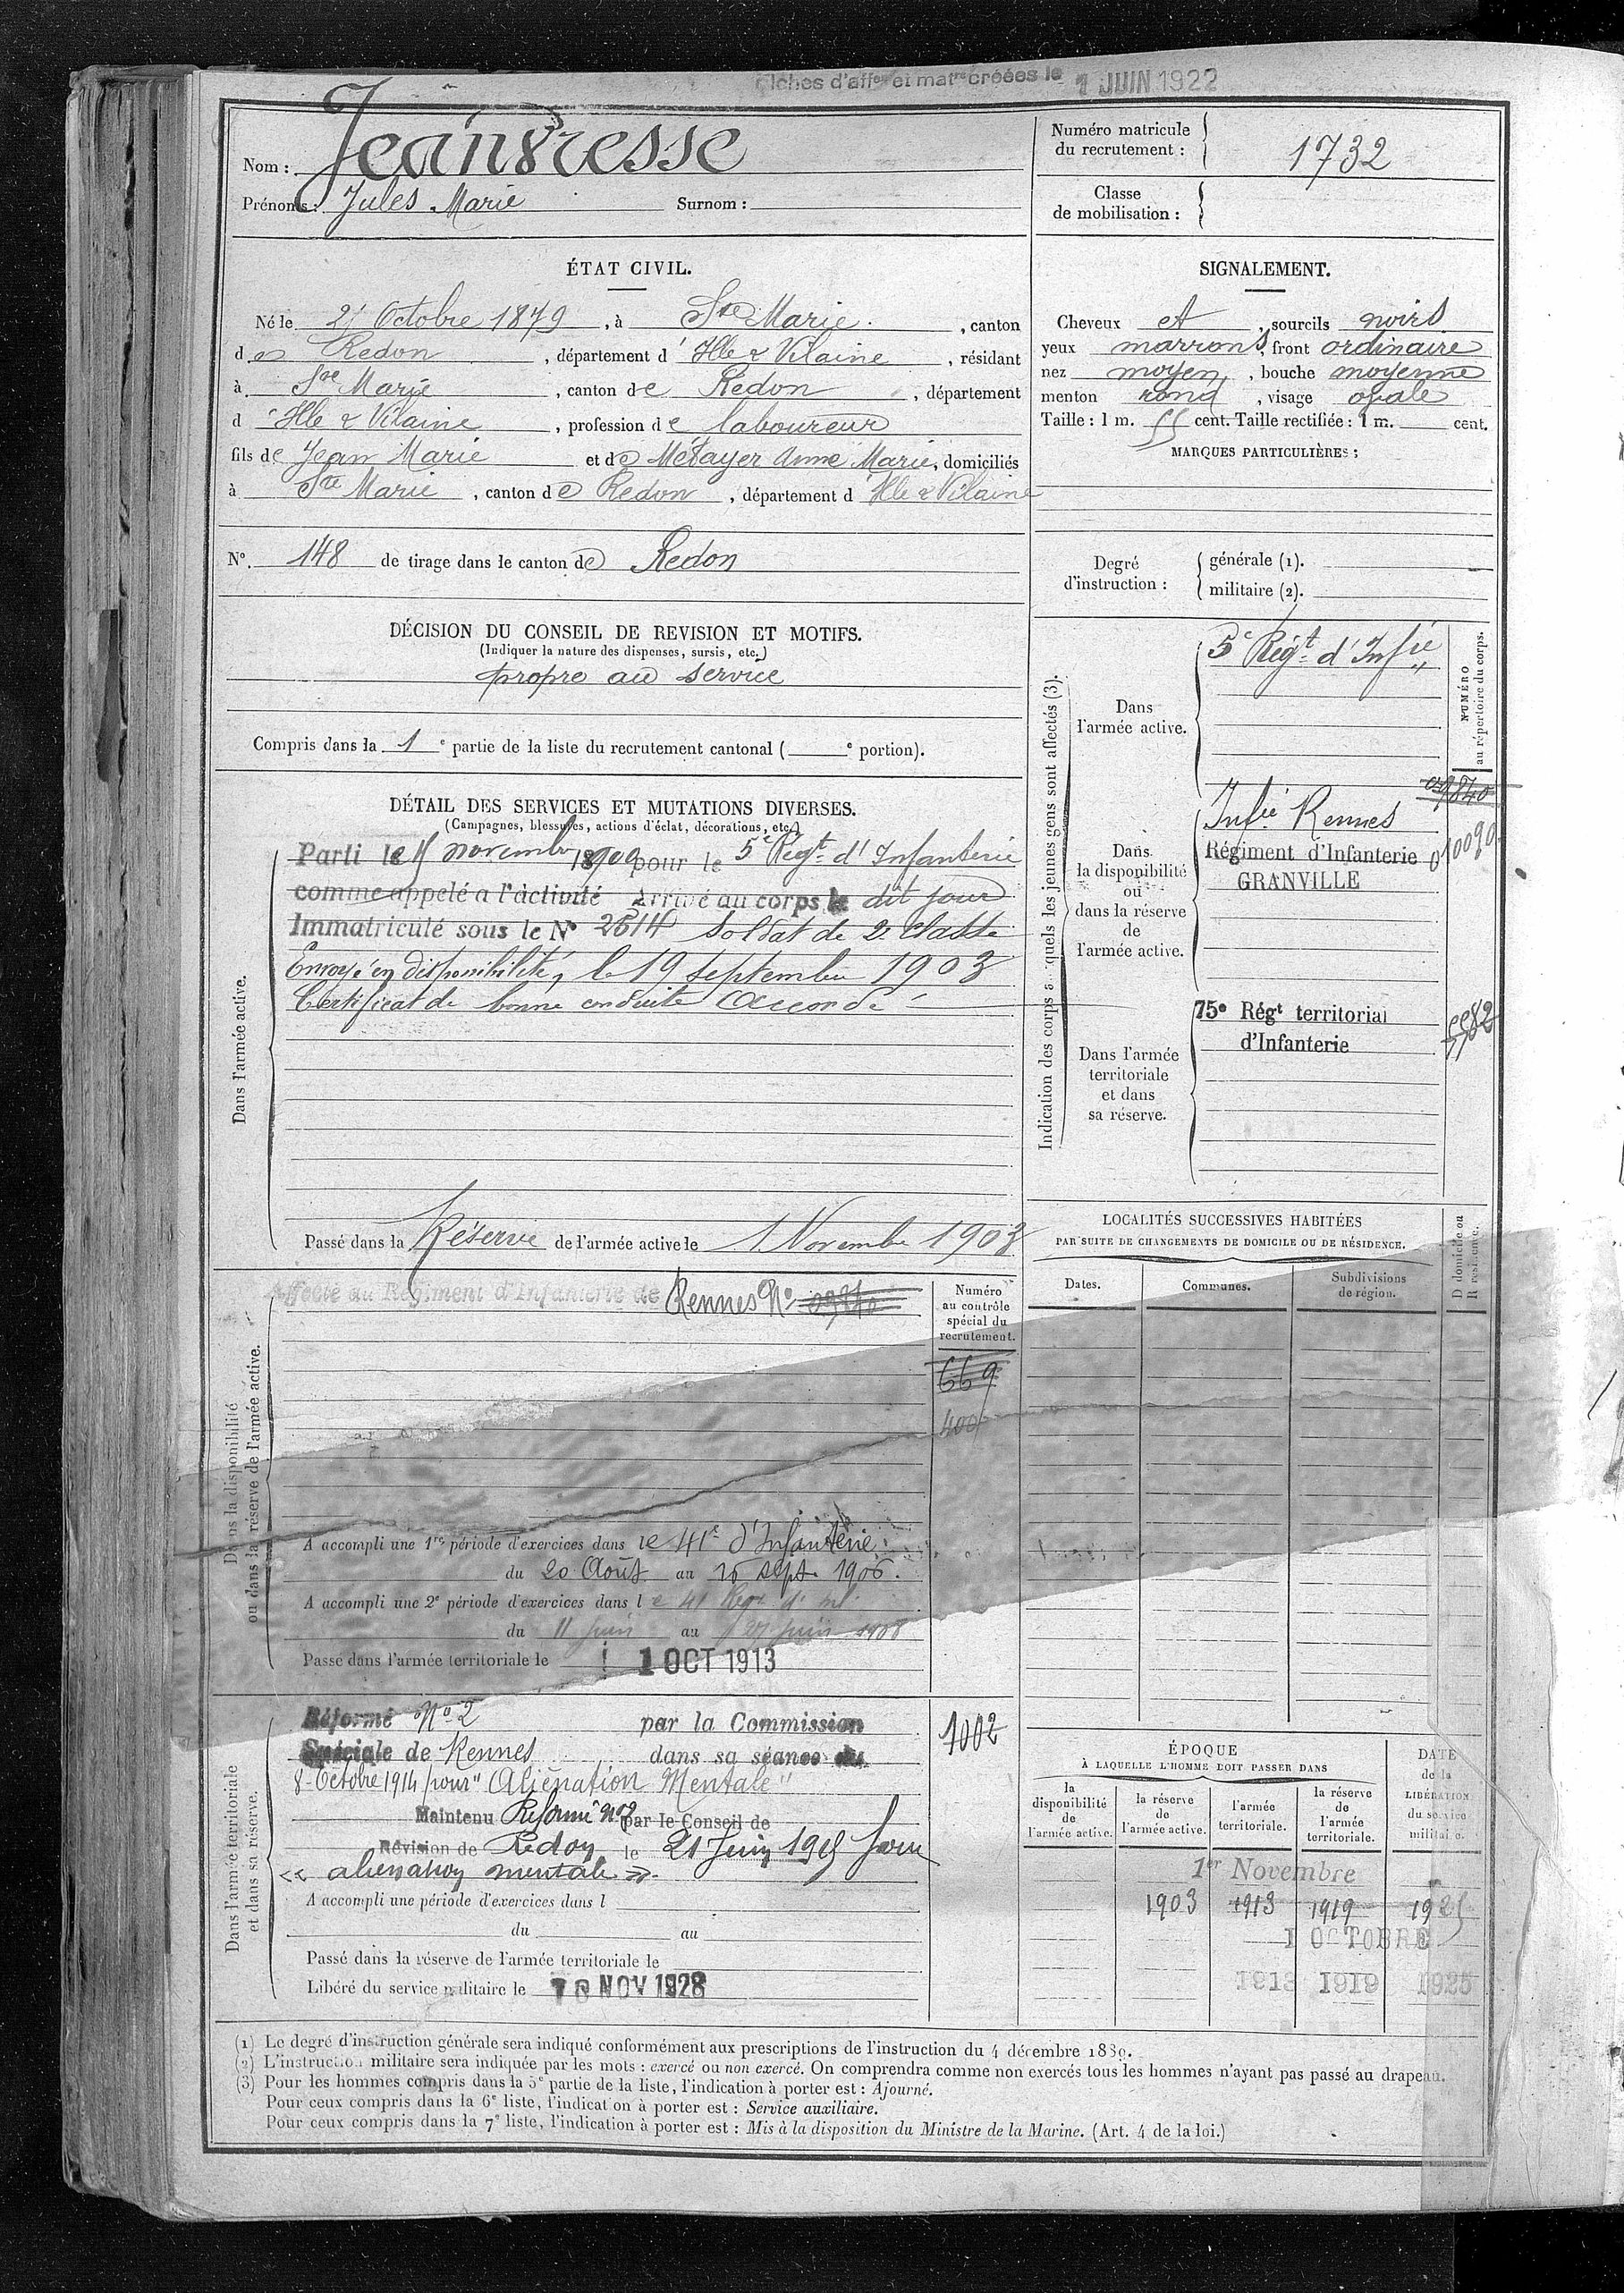 Fiches d'aff^on et mat^re créées le 1 JUIN 1922
Nom : Jeandresse
Prénoms : Jules Marie Surnom :
Numéro matricule du recrutement : 1732
Classe de mobilisation :
ÉTAT CIVIL.
Né le 21 Octobre 1879, à Ste Marie, canton
de Redon, département d'Ille & Vilaine, résidant
à Ste Marie, canton de Redon, département
d'Ille & Vilaine, profession de laboureur
fils de Jean Marie et de Métayer Anne Marie, domiciliés
à Ste Marie, canton de Redon, département d'Ille & Vilaine
N° 148 de tirage dans le canton de Redon
SIGNALEMENT.
Cheveux et, sourcils noirs
yeux marrons, front ordinaire
nez moyen, bouche moyenne
menton rond, visage ovale
Taille : 1 m. 55 cent. Taille rectifiée : 1 m. cent.
MARQUES PARTICULIÈRES :
Degré d'instruction : générale (1).
militaire (2).
DÉCISION DU CONSEIL DE REVISION ET MOTIFS.
(Indiquer la nature des dispenses, sursis, etc.)
propre au service
Compris dans la 1e partie de la liste du recrutement cantonal ( e portion).
DÉTAIL DES SERVICES ET MUTATIONS DIVERSES.
(Campagnes, blessures, actions d'éclat, décorations, etc.)
Dans l'armée active.
Parti le novembre 1900 pour le 5e Régt d'Infanterie
comme appelé a l'activité Arrivé au corps le dit jour
Immatriculé sous le N° 2514 Soldat de 2e classe
Envoyé en disponibilité, le 19 septembre 1903
Certificat de bonne conduite Accordé
Passé dans la Réserve de l'armée active le 1 Novembre 1903
Indication des corps auxquels les jeunes gens sont affectés (3).
NUMÉRO au répertoire du corps.
Dans l'armée active.
5e Régt d'Infie
Dans la disponibilité ou dans la réserve de l'armée active.
Infie Rennes 09840
Régiment d'Infanterie 010090
GRANVILLE
Dans l'armée territoriale et dans sa réserve.
75e Régt territorial
d'Infanterie 5582
Dans la disponibilité ou dans la réserve de l'armée active.
Affecté au Régiment d'Infanterie de Rennes No 09840
Numéro au contrôle spécial du recrutement.
669
400
A accompli une 1re période d'exercices dans le 41e d'Infanterie
du 20 Août au 16 sept. 1906.
A accompli une 2e période d'exercices dans le 41 Régt d'Inf
du 11 juin au 27 juin 1908
Passé dans l'armée territoriale le 1 OCT 1913
LOCALITÉS SUCCESSIVES HABITÉES
PAR SUITE DE CHANGEMENTS DE DOMICILE OU DE RÉSIDENCE.
Dates. Communes. Subdivisions de région. D domicile ou R résidence.
Dans l'armée territoriale et dans sa réserve.
Réformé No 2 par la Commission 1002
Spéciale de Rennes dans sa séance du
8 Octobre 1914 pour "Aliénation Mentale"
Maintenu Réformé No 2 par le Conseil de
Révision de Redon le 21 Juin 1915 pour
« alienation mentale ».
A accompli une période d'exercices dans l
du au
Passé dans la réserve de l'armée territoriale le
Libéré du service militaire le 10 NOV 1928
ÉPOQUE
À LAQUELLE L'HOMME DOIT PASSER DANS
la disponibilité de l'armée active. la réserve de l'armée active. l'armée territoriale. la réserve de l'armée territoriale. DATE de la LIBÉRATION du service militaire.
1er Novembre
1903 1913 1919 1925
1 OCTOBRE
1913 1919 1925
(1) Le degré d'instruction générale sera indiqué conformément aux prescriptions de l'instruction du 4 décembre 1889.
(2) L'instruction militaire sera indiquée par les mots : exercé ou non exercé. On comprendra comme non exercés tous les hommes n'ayant pas passé au drapeau.
(3) Pour les hommes compris dans la 5e partie de la liste, l'indication à porter est : Ajourné.
Pour ceux compris dans la 6e liste, l'indication à porter est : Service auxiliaire.
Pour ceux compris dans la 7e liste, l'indication à porter est : Mis à la disposition du Ministre de la Marine. (Art. 4 de la loi.)